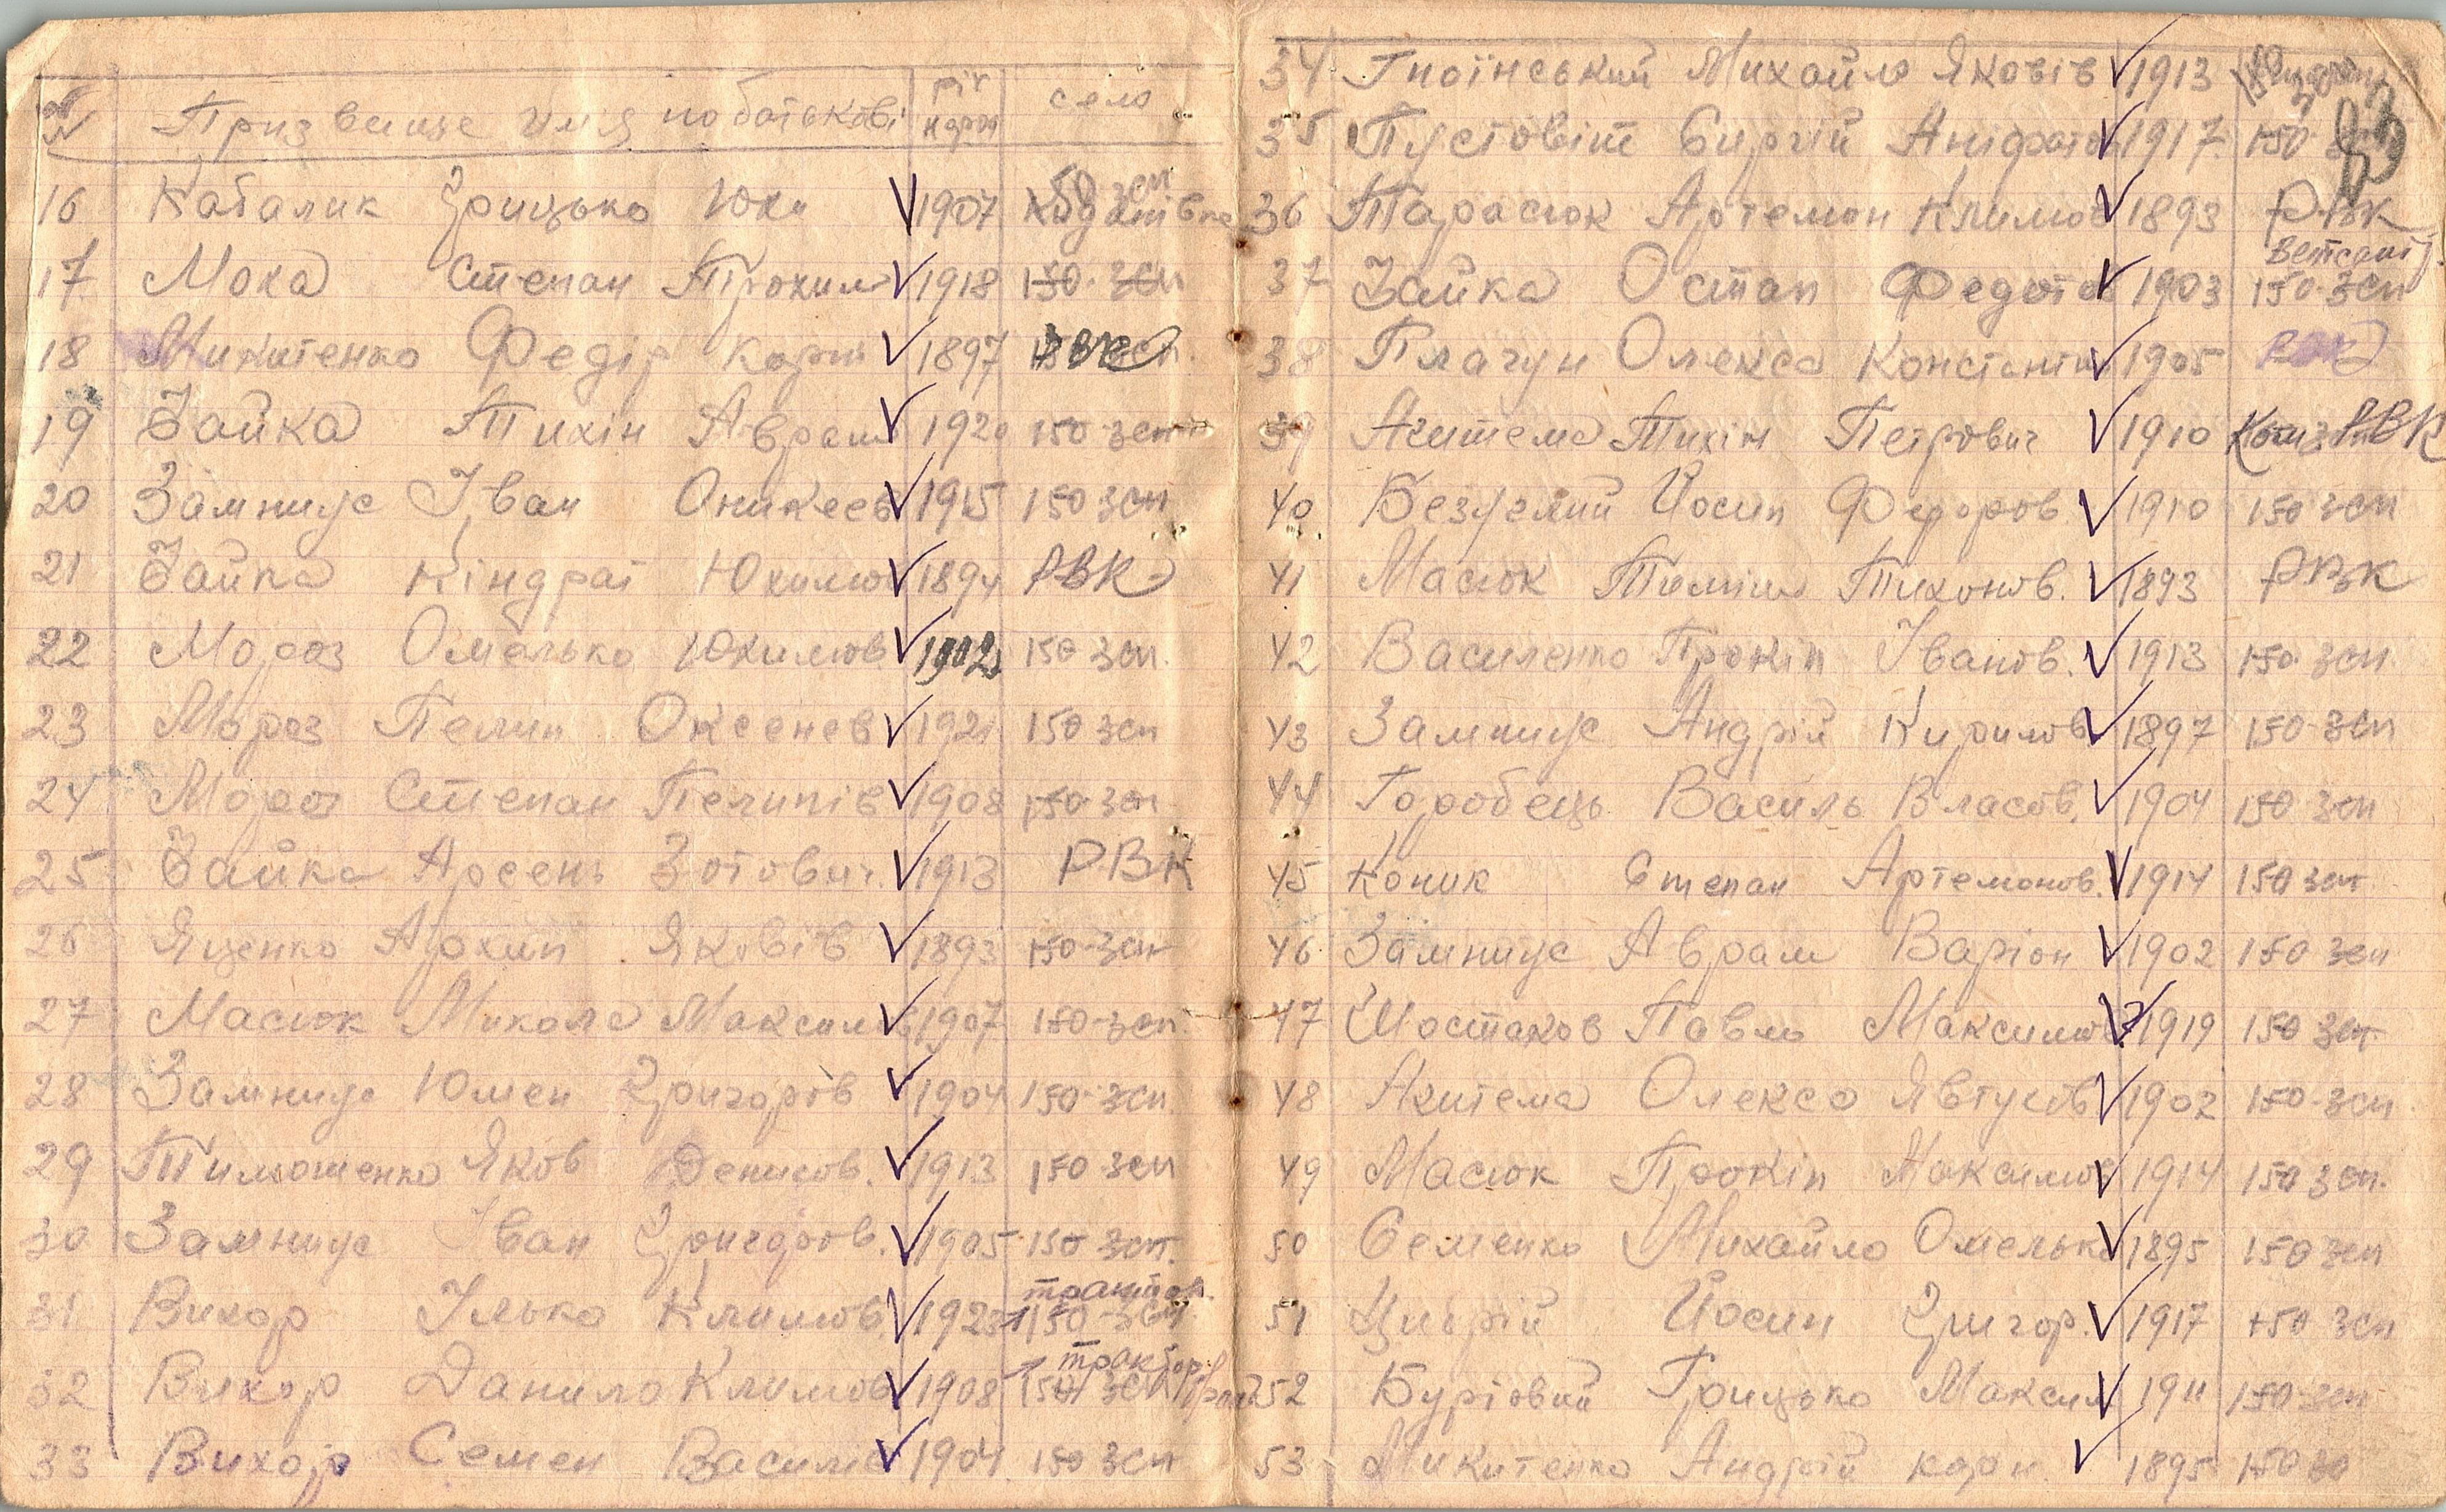 № Призвище имя по батькові рік нарож село
16 Кабалик Грицько Юхи 1907
17 Мока Степан Трохим 1918 150 зсп
18 Микитенко Федір Карпі 1897
19 Зайка Тихін Аврам 1920 150 зсп
20 Замниус Іван Оникеев 1915 150 зсп
21 Зайка Кіндрат Юхимов 1894 РВК
22 Мороз Омелько Юхимов 1902 150 зсп.
23 Мороз Пелип Оксенев 1921 150 зсп
24 Мороз Степан Пелипів 1908 150 зсп
25 Зайка Арсень Зотович. 1913 РВК
26 Яценко Архип Яковів 1893 150 зсп
27 Масюк Микола Максимов 1907 150 зсп.
28 Замниус Юмен Григоров 1904 150 зсп
29 Тимошенко Яков Денисов. 1913 150 зсп
30 Замниус Іван Григоров. 1905 150 зсп.
трактор.
31 Вихор Ілько Климов. 1923 150 зсп
трактор
32 Вихор Данило Климов 1908 150 зсп
33 Вихор Семен Василів 1904 150 зсп
34 Гноїнський Михайло Яковів 1913
35 Пустовіт Сиргій Аніфатов 1917 150
36 Тарасюк Артемон Климов 1893 РВК
37 Зайка Остап Федотов 1903 150 зсп
38 Плачун Олекса Констянтин 1905 РВК
39 Акитема Тихін Петрович 1910 РВК
40 Безуглий Йосип Федоров. 1910 150 зсп
41 Масюк Тиміш Тихонов. 1893 РВК
42 Василенко Прокіп Іванов. 1913 150 зсп
43 Замниус Андрій Кирилов 1897 150 зсп
44 Горобець Василь Власов. 1904 150 зсп
45 Коник Степан Артемонов. 1914 150 зсп
46 Замниус Аврам Варіон 1902 150 зсп
47 Шостаков Павло Максимов. 1919 150 зсп
48 Акитема Олекса Явтухов 1902 150 зсп
49 Масюк Прокіп Максимов 1914 150 зсп.
50 Семенко Михайло Омелько 1895 150 зсп
51 Цигрій Йосип Григор. 1917 150 зсп
52 Буртовий Грицько Максим 1911 150 зсп
53 Микитенко Андрій карп. 1895 150 зс